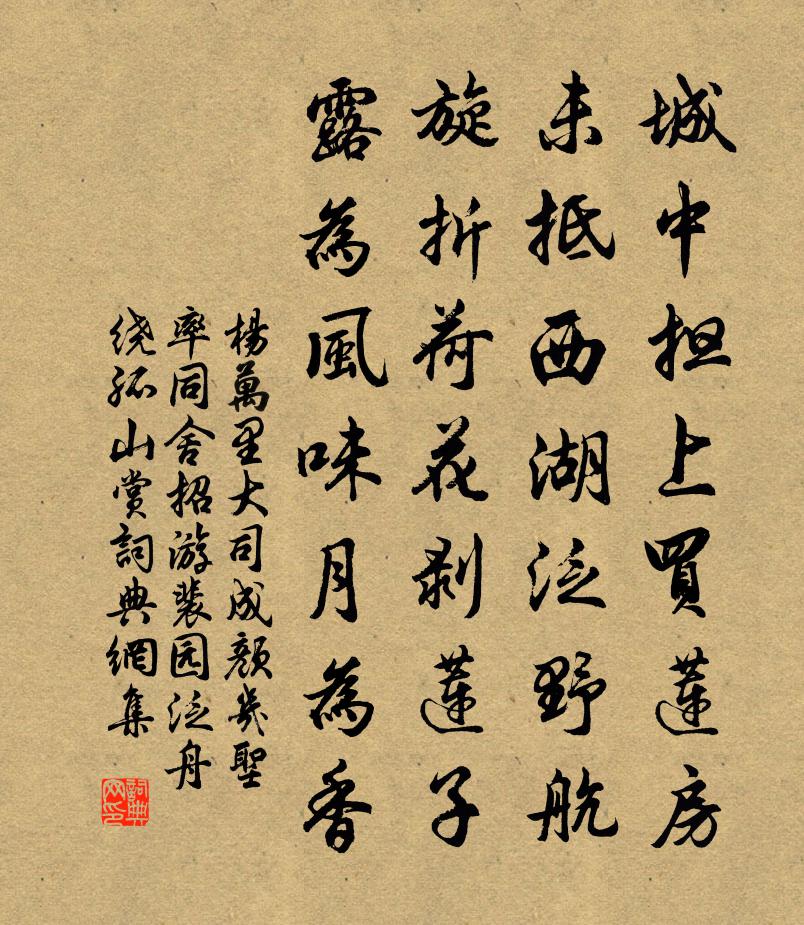 城中担上買蓮房
未抵西湖泛野航
旋折荷花剥蓮子
露為風味月為香
楊萬里大司成顏幾聖
率同舍招游裴园泛舟
绕孤山賞詞典網集
詞典网印